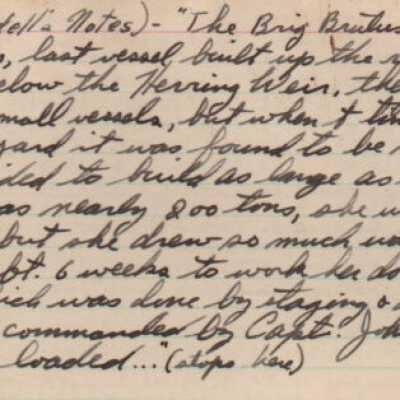 tell's Notes) - "The Brig Brutus
last vessel built up the
below the Herring Weir, the
small vessels, but when t
yard it was found to be
ded to build as large as
as nearly 200 tons, she
but she drew so much
ft. 6 weeks to work her do
ich was done by staging
commanded by Capt. Joh
loaded..." (stops here)